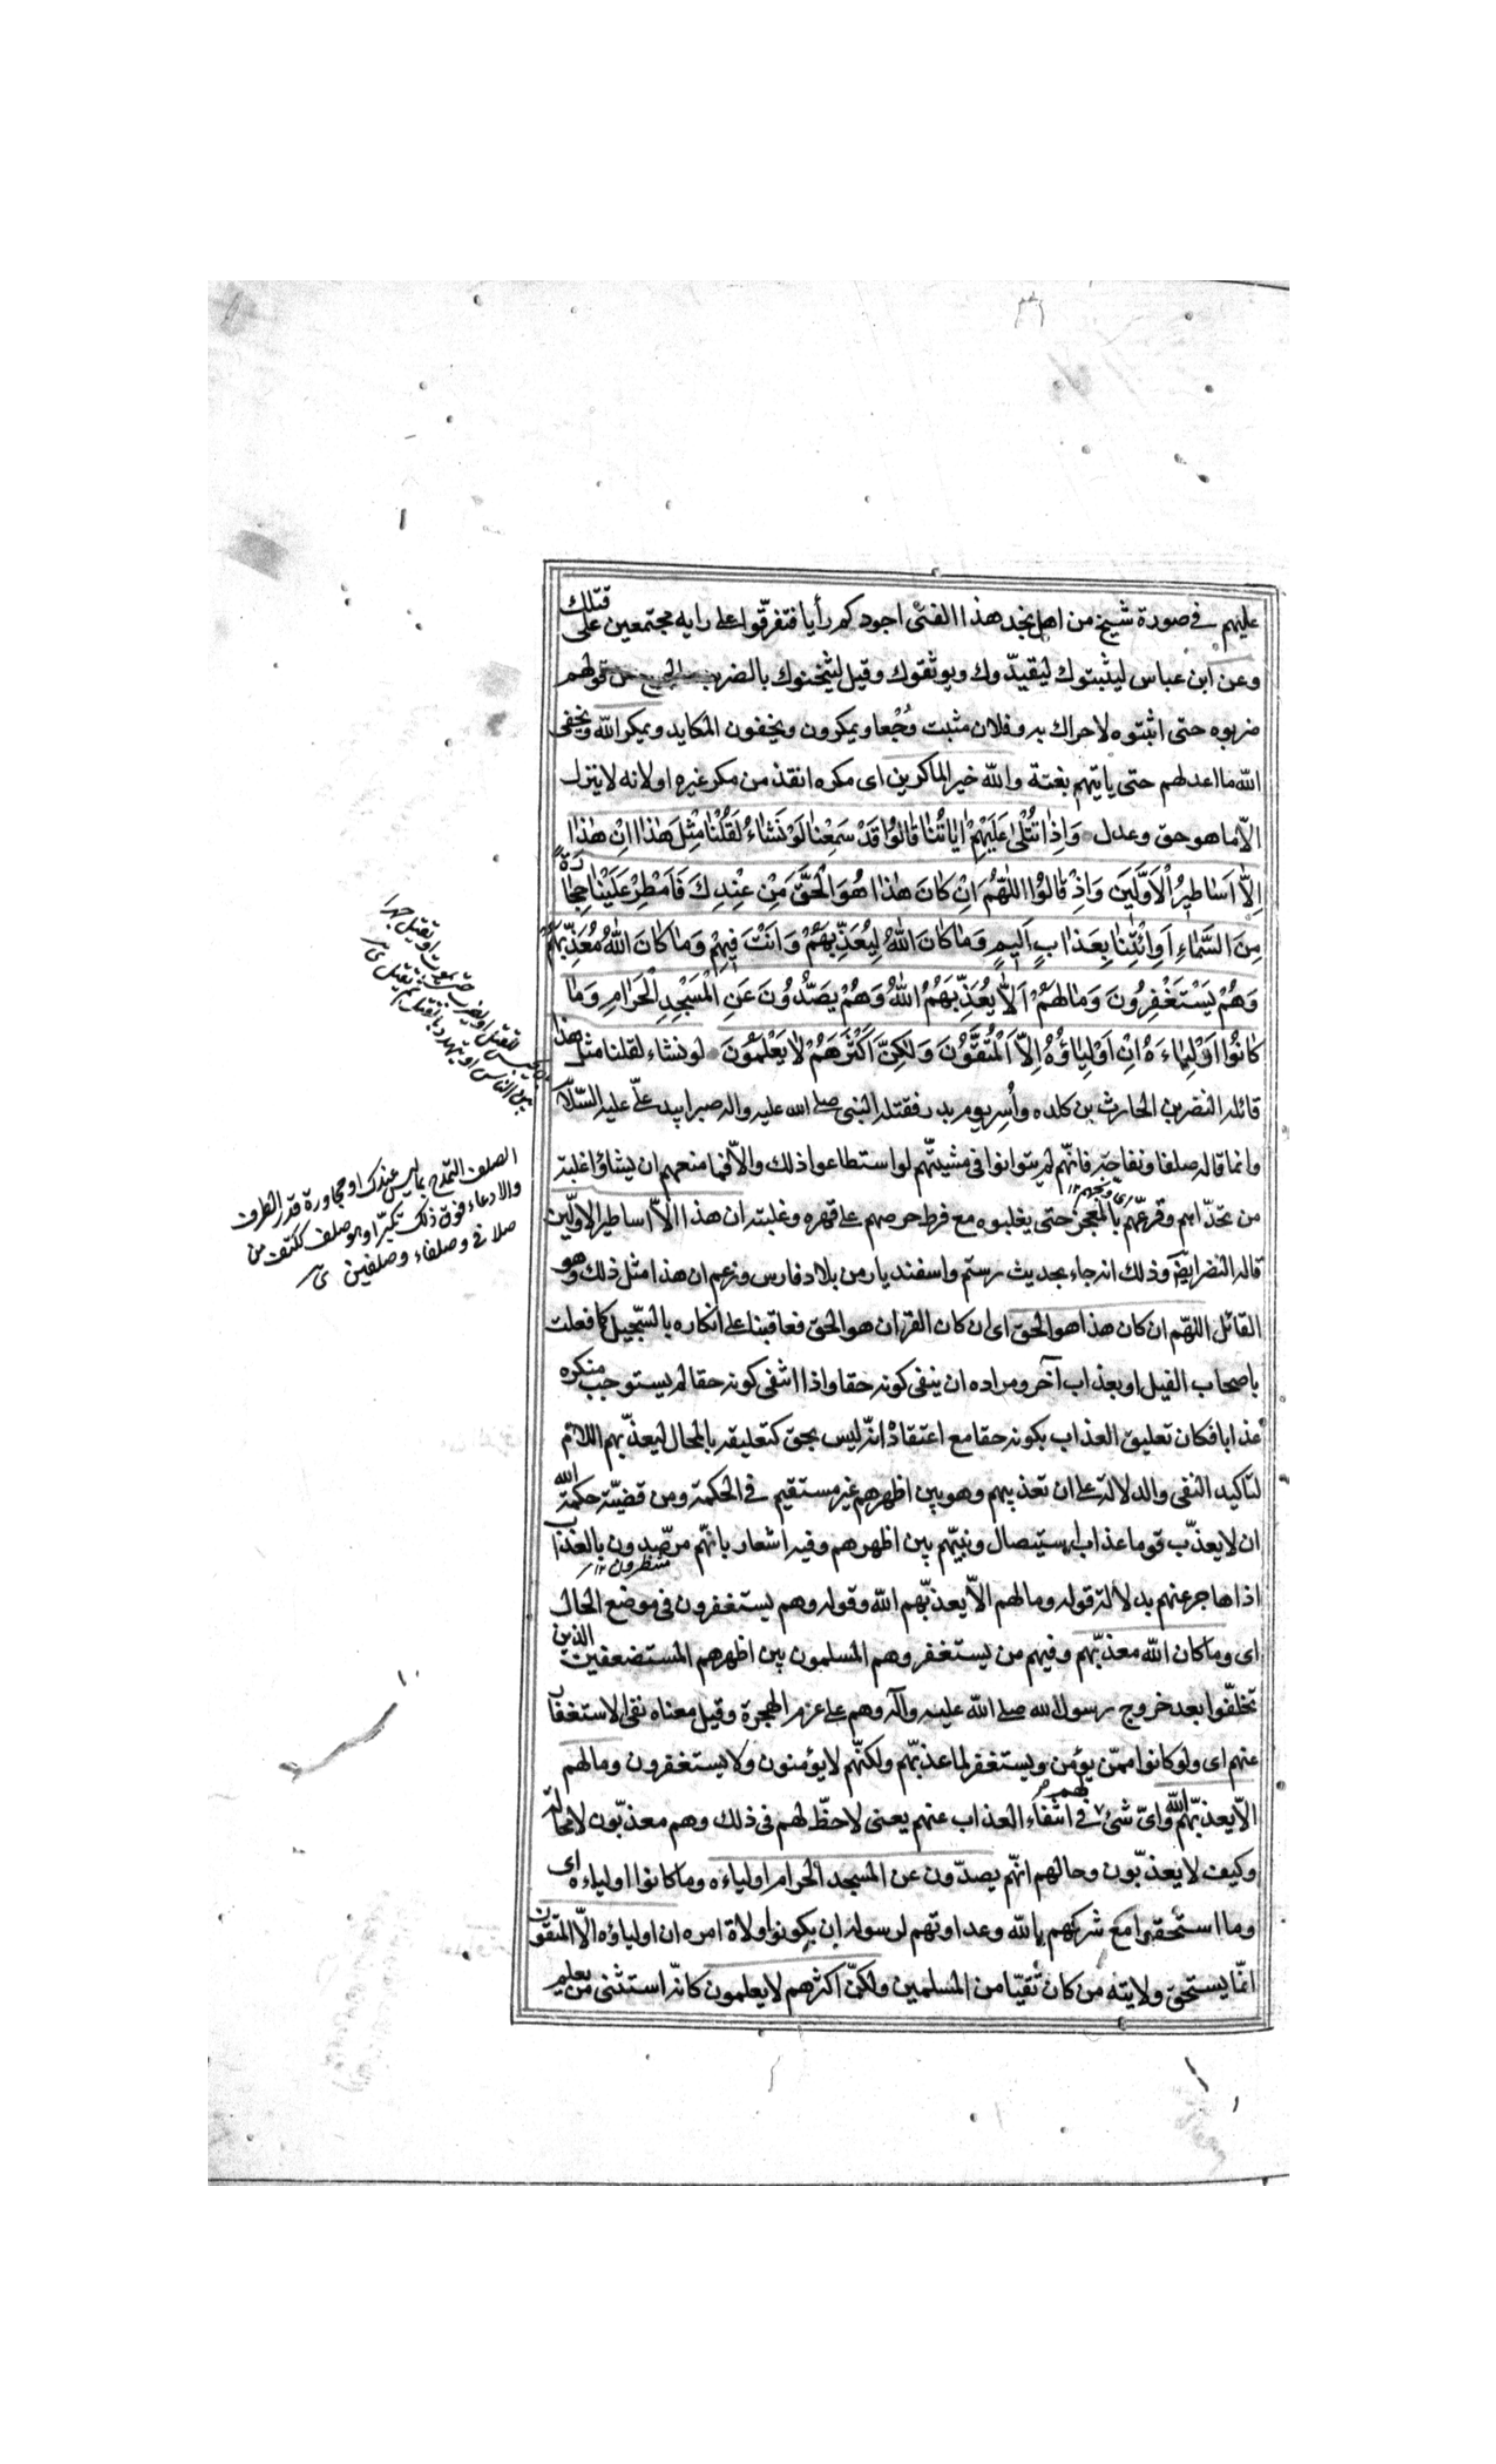 عليهم في صورة شيخ من اهل نجد هذا الفتى اجودكم رأيا فتفرّقوا على رايه مجتمعين على قتلك
وعن ابن عباس ليثبتوك ليقيدّوك ويوثقوك وقيل ليثخنوك بالضرب من قولهم
ضربوه حتى اثبتوه لا حراك به وفلان مثبت وُجْعا ويمكرون ويخفون المكايد ويمكر الله ويخفى
الله ما اعد لهم حتى ياتيهم بغتة والله خير الماكرين اى مكره انقذ من مكر غيره او لانه لا ينزل
الّا ما هو حق وعدل وَاِذا تُتْلىٰ عَلَيْهِمْ اٰياتُنٰا قٰالُوا قَدْ سَمِعْنٰا لَوْ نَشٰاءُ لَقُلْنٰا مِثْلَ هٰذٰا اِنْ هٰذٰا
اِلّٰا اَسٰاطِيرُ الْاَوَّلِينَ وَاِذْ قٰالُوا اللّٰهُمَّ اِنْ كٰانَ هٰذٰا هُوَ الْحَقَّ مِنْ عِنْدِكَ فَاَمْطِرْ عَلَيْنٰا حِجٰارَةً
مِنَ السَّمٰاءِ اَوِ ائْتِنٰا بِعَذٰابٍ اَلِيمٍ وَمٰا كٰانَ اللّٰهُ لِيُعَذِّبَهُمْ وَاَنْتَ فِيهِمْ وَمٰا كٰانَ اللّٰهُ مُعَذِّبَهُمْ
وَهُمْ يَسْتَغْفِرُونَ وَمٰا لَهُمْ اَلّٰا يُعَذِّبَهُمُ اللّٰهُ وَهُمْ يَصُدُّونَ عَنِ الْمَسْجِدِ الْحَرٰامِ وَمٰا
كٰانُوا اَوْلِيٰاءَهُ اِنْ اَوْلِيٰاؤُهُ اِلَّا الْمُتَّقُونَ وَلٰكِنَّ اَكْثَرَهُمْ لٰا يَعْلَمُونَ لو نشاء لقلنا مثل هذا
قائله النضر بن الحارث بن كلده واُسِر يوم بدر فقتله النبى صلى الله عليه واله صبرا بيد علىّ عليه السّلام
وانما قاله صلفا ونفاجة فانّهم لم يتوانوا فى مشيتّهم لو استطاعوا ذلك والاّ فما منعهم ان يشاؤا غلبة
من تحدّاهم وقرعّهم بالعجز حتى يغلبوه مع فرط حرصهم على قهره وغلبته ان هذا الاّ اساطير الاولّين
قاله النضر ايضا وذلك انه جاء بحديث رستم واسفنديار من بلاد فارس وزعم ان هذا مثل ذلك وهو
القائل اللهّم ان كان هذا هو الحق اى ان كان القران هو الحق فعاقبنا على انكاره بالسّجيل كما فعلت
باصحاب الفيل او بعذاب آخر ومراده ان ينفى كونه حقا واذا انتفى كونه حقا لم يستوجب منكره
عذابا فكان تعليق العذاب بكونه حقا مع اعتقاد انّه ليس بحق كتعليقه بالمحال ليعذّبهم اللام
لتاكيد النفى والدلالة على ان تعذيبهم وهو بين اظهرهم غير مستقيم فى الحكمة ومن قضيّة حكمة الله
ان لا يعذّب قوما عذاب استيصال ونبيّهم بين اظهرهم وفيه اشعار بانّهم مرصّدون بالعذاب
منتظرون
اذا هاجر عنهم بدلالة قوله وما لهم الاّ يعذبّهم الله وقوله وهم يستغفرون فى موضع الحال
اى وما كان الله معذبّهم وفيهم من يستغفر وهم المسلمون بين اظهرهم المستضعفين الذين
تخلّفوا بعد خروج رسول الله صلى الله عليه وآله وهم على عزم الهجرة وقيل معناه نفى الاستغفار
عنهم اى ولو كانوا ممّن يؤمن ويستغفر لما عذبّهم ولكنّهم لا يؤمنون ولا يستغفرون وما لهم
الاّ يعذبّهم الله واىّ شئ لهم فى انتفاء العذاب عنهم يعنى لا حظّ لهم فى ذلك وهم معذبّون لا محالة
وكيف لا يعذبّون وحالهم انّهم يصدّون عن المسجد الحرام اولياءه وما كانوا اولياءه اى
وما استحقوا مع شركهم بالله وعداوتهم لرسوله ان يكونوا ولاة امره ان اولياؤه الاّ المتقون
انّما يستحق ولايته من كان تقيّا من المسلمين ولكنّ اكثرهم لا يعلمون كانّه استثنى من يعلم
الصلف التمدّح بما ليس عندك او مجاوزة قدر الظرف
والادعاء فوق ذلك تكبّرا وهو صلف ككتف من
صلافى وصلفاء وصلفين